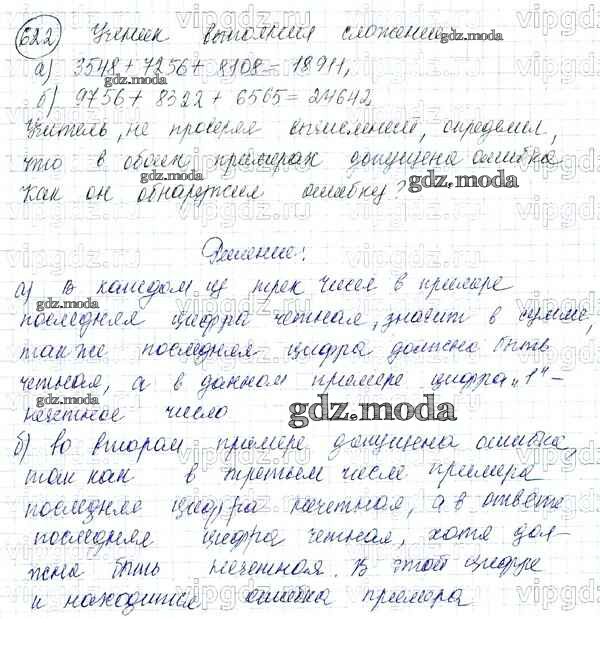 622 Ученик выполнил сложение:
а) 3548 + 7256 + 8108 = 18911,
б) 9756 + 8322 + 6565 = 24642
Учитель, не проверяя вычислений, определил,
что в обоих примерах допущена ошибка
Как он обнаружил ошибку?
Решение:
а) В каждом из трех чисел в примере
последняя цифра четная, значит в сумме,
также последняя цифра должна быть
четная, а в данном примере цифра „1" -
нечетное число
б) во втором примере допущена ошибка,
так как в третьем числе примера
последняя цифра нечетная, а в ответе
последняя цифра четная, хотя дол-
жна быть нечетная. В этой цифре
и находится ошибка примера
gdz.moda
gdz.moda
gdz.moda
gdz.moda
gdz.moda
gdz.moda
gdz.moda
vipgdz.ru